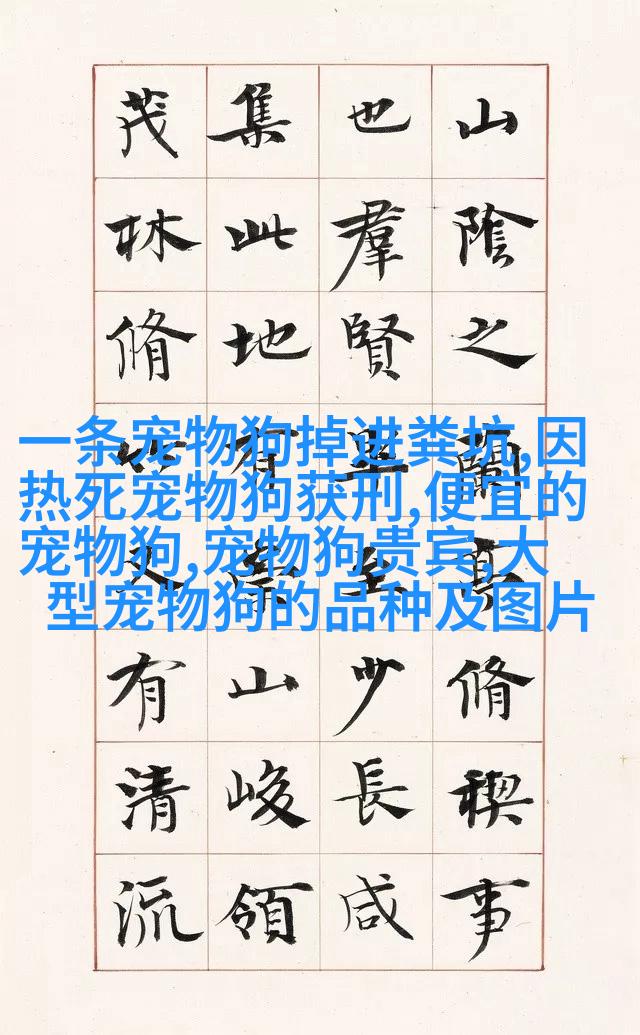 山陰之蘭亭脩禊事
也羣賢畢至少長咸
集此地有崇山峻領
茂林脩竹又有清流
一条宠物狗掉进粪坑,因
热死宠物狗获刑,便宜的
宠物狗,宠物狗贵宾,大
型宠物狗的品种及图片